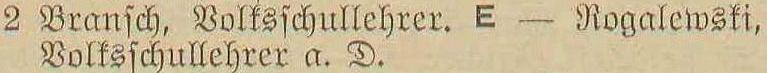 2 Bransch, Volksschullehrer. E — Rogalewski,
Volksschullehrer a. D.